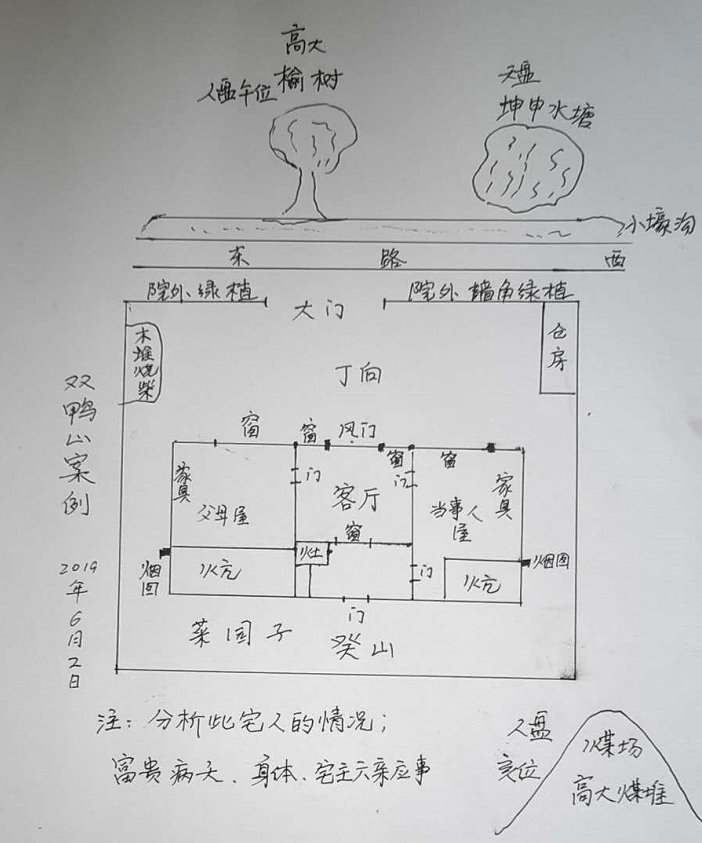 高大
榆树
人盘午位
天盘
坤申水塘
小壕沟
东 路 西
院外绿植
大门
院外墙角绿植
木堆烧柴
仓房
丁向
双鸭山案例
2019年6月2日
窗
窗
风门
窗
窗
家具
父母屋
门
客厅
门
当事人屋
家具
窗
灶
烟囱
火亢
门
火亢
烟囱
门
菜园子
癸山
注：分析此宅人的情况；
富贵病夭、身体、宅主六亲应事
人盘
亥位
煤场
高大煤堆